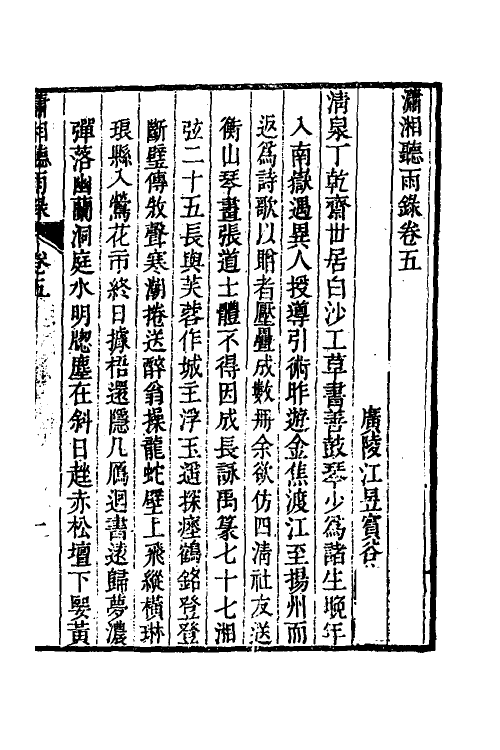 瀟湘聽雨錄卷五
廣陵江昱賓谷
清泉丁乾齋世居白沙工草書善鼓琴少爲諸生晚年
入南嶽遇異人授導引術昨遊金焦渡江至揚州而
返爲詩歌以贈者壓疊成數冊余欲仿四清社友送
衡山琴畫張道士體不得因成長詠禹篆七十七湘
弦二十五長與芙蓉作城主浮玉遥探瘞鶴銘登登
斷壁傳敇聲寒潮捲送醉翁操龍蛇壁上飛縱橫琳
琅縣入鶯花市終日據梧還隱几鴈迴書遠歸夢濃
彈落幽蘭洞庭水明牕塵在斜日趖赤松壇下娶黃
瀟湘聽雨錄
卷五
一